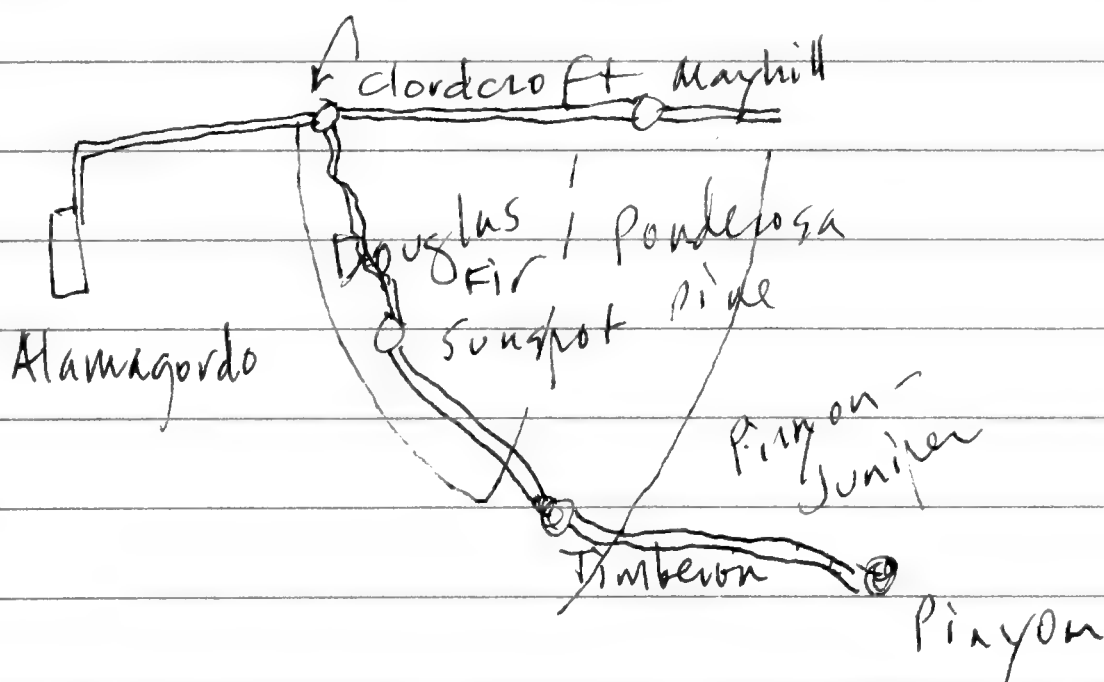 Clordcroft Mayhill
Douglas
Fir
Ponderosa
Pine
Sunspot
Alamagordo
Pinyon-
Juniper
Timberon
Pinyon